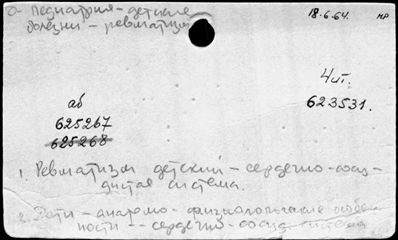 О Педиатрия - детские
болезни - ревматизм
18.6.64. нр
Чит.
623531.
аб
625267
625268
1. Ревматизм детский - сердечно-сосу-
дистая система.
2. Дети - анатомо-физиологические особен
ности - сердечно-сосуд. система